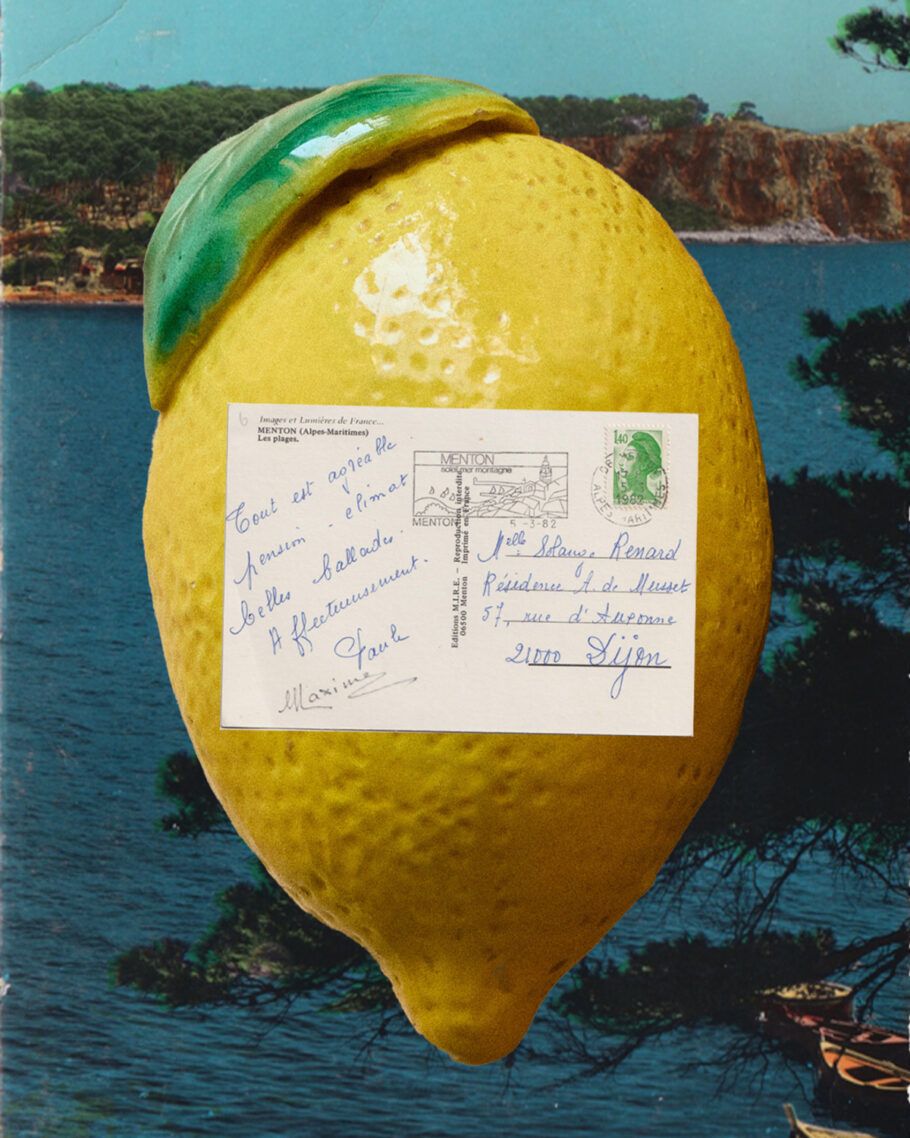 Images et Lumières de France...
MENTON (Alpes-Maritimes)
Les plages.
Tout est agréable
pension - climat
belles ballades.
Affectueusement.
Paule
Maxime
Editions M.I.R.E. – Reproduction interdite
06500 Menton Imprimé en France
MENTON
soleil mer montagne
MENTON
5 -3-82
1,40
1982
ALPES MARITIMES
Melle Solange Renard
Résidence A. de Musset
57, rue d'Auxonne
21000 Dijon